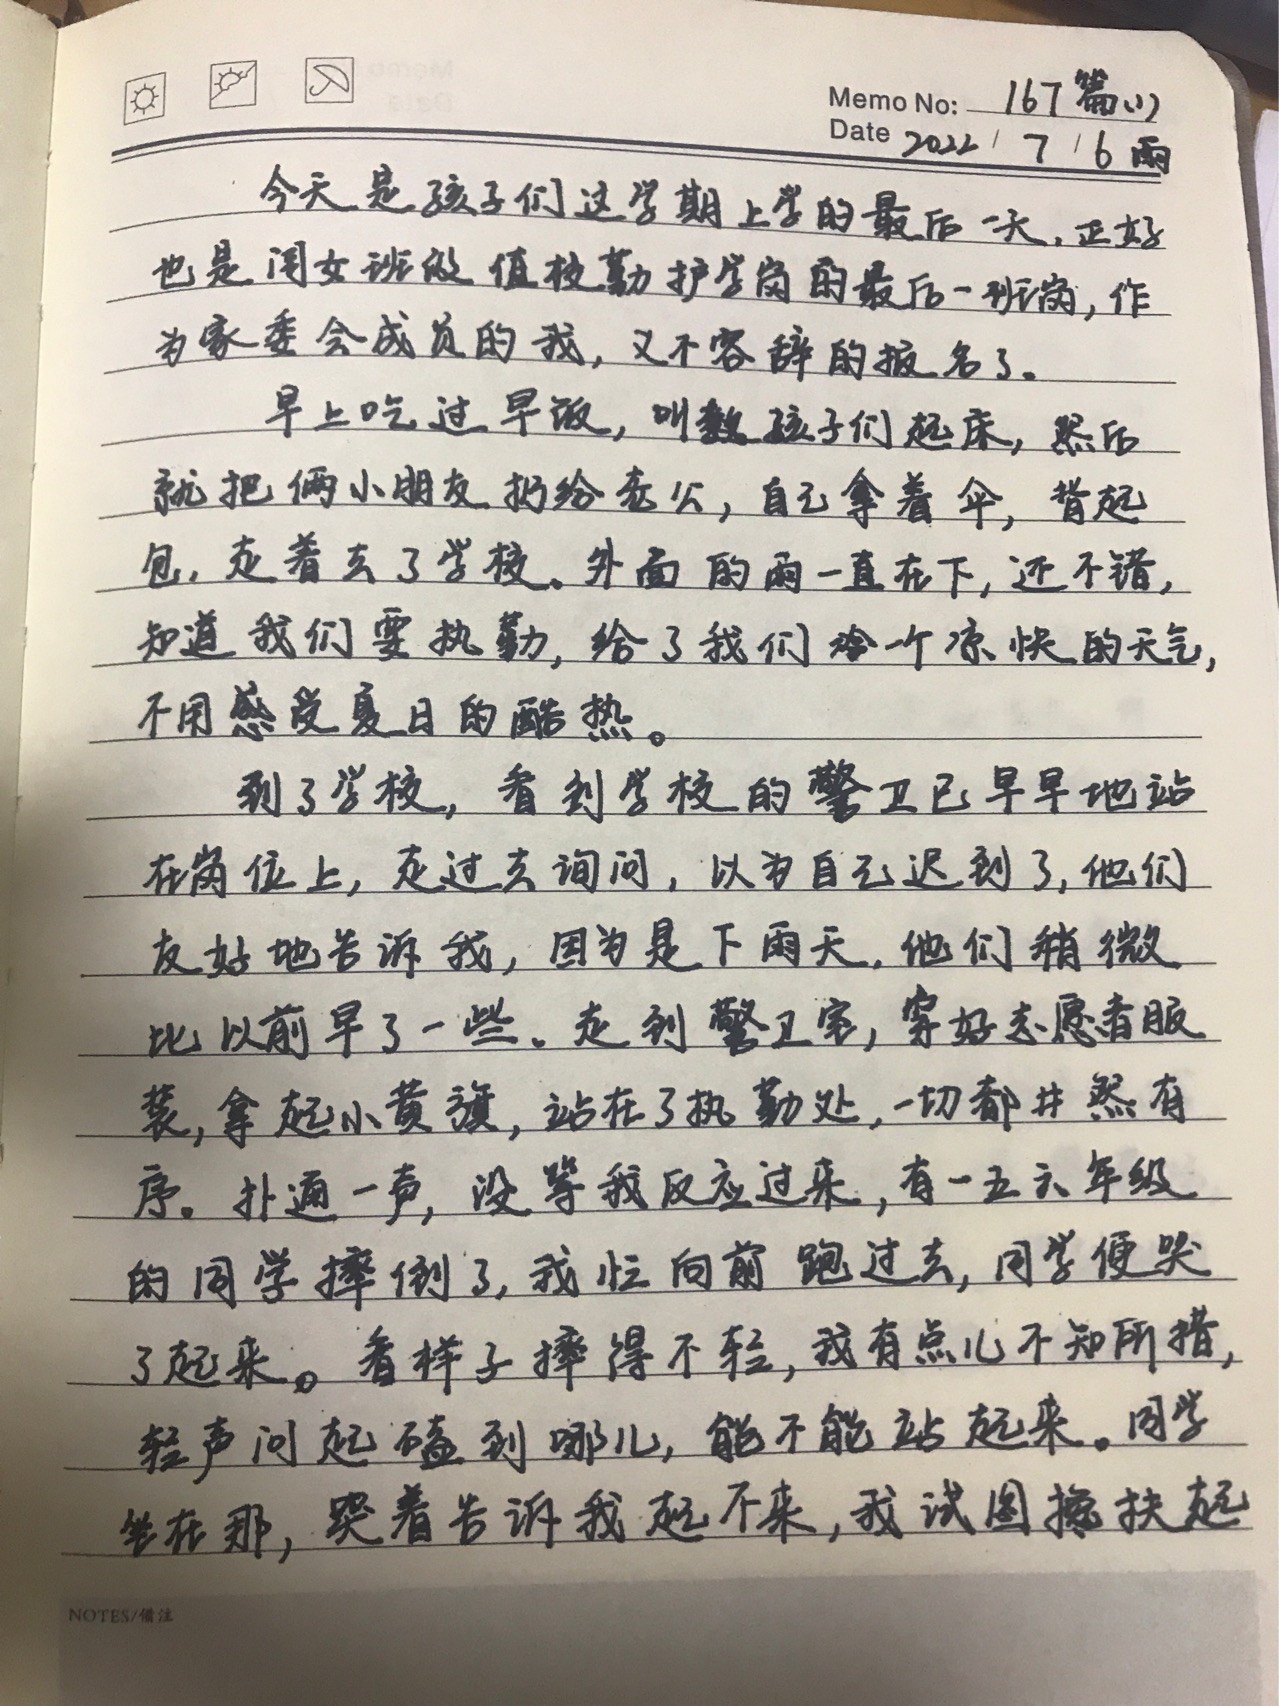 Memo No: 167篇(1)
Date 2022/7/6 雨
今天是孩子们这学期上学的最后一天，正好
也是闺女班级值校勤护学岗的最后一班岗，作
为家委会成员的我，义不容辞的报名了。
早上吃过早饭，叫孩子们起床，然后
就把俩小朋友扔给老公，自己拿着伞，背起
包，走着去了学校。外面的雨一直在下，还不错，
知道我们要执勤，给了我们一个凉快的天气，
不用感受夏日的酷热。
到了学校，看到学校的警卫已早早地站
在岗位上，走过去询问，以为自己迟到了，他们
友好地告诉我，因为是下雨天，他们稍微
比以前早了一些。走到警卫室，穿好志愿者服
装，拿起小黄旗，站在了执勤处，一切都井然有
序。扑通一声，没等我反应过来，有一五六年级
的同学摔倒了，我忙向前跑过去，同学便哭
了起来。看样子摔得不轻，我有点儿不知所措，
轻声问起磕到哪儿，能不能站起来。同学
坐在那，哭着告诉我起不来，我试图搀扶起
NOTES/备注